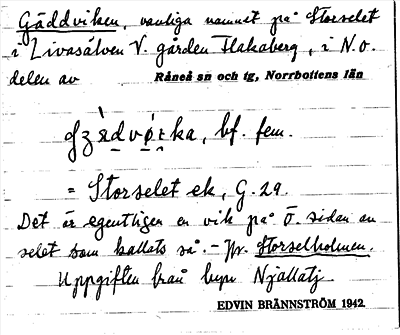 Gäddviken, vanliga namnet på Storselet
i Livasälven V. gården Flakaberg, i N.O.
delen av Råneå sn och tg, Norrbottens län
bf. fem.
= Storselet ek, G.29.
Det är egentligen en vik på Ö. sidan av
selet som kallats så. – Jfr. Storselholmen.
Uppgiften från Njallatj
EDVIN BRÄNNSTRÖM 1942